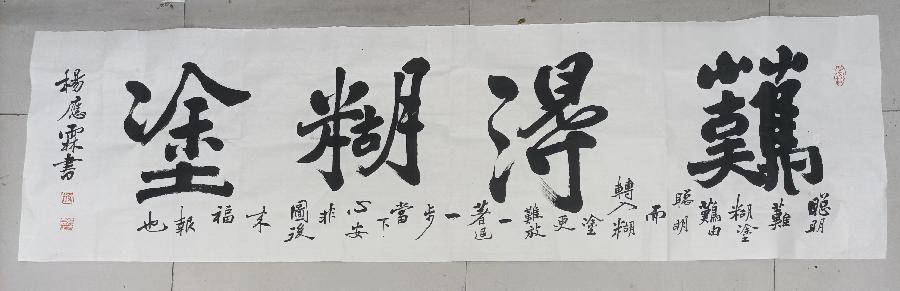 難得糊塗
聰明難糊塗難由聰明而轉入糊塗更難放一著退一步當下心安非圖後来福報也
楊應霖書